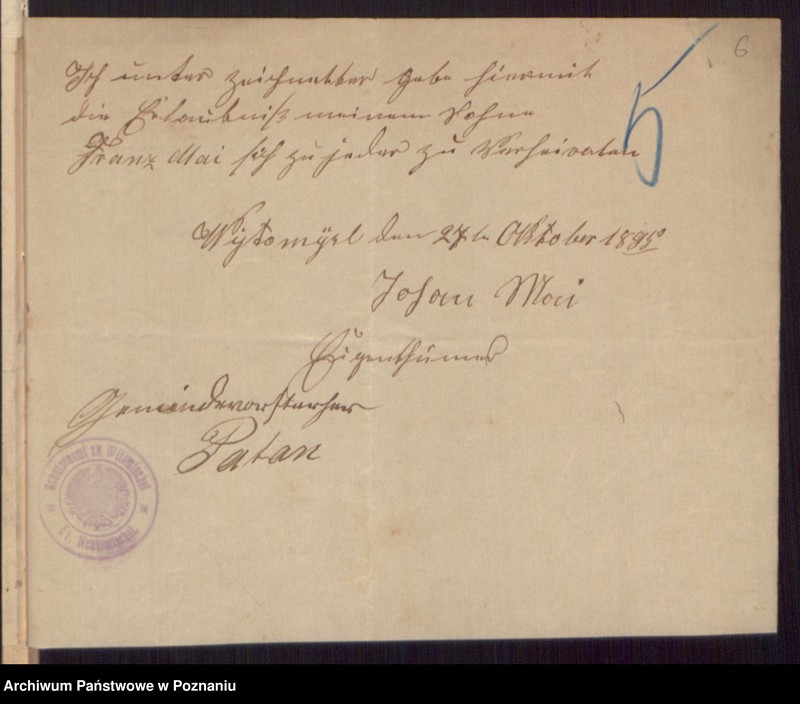 6
5
Ich unter zeichnetter gebe hiermit
die Erlaubniß meinem Sohne
Franz Mai sich zu jeder zu Verheiraten
Wytomysl den 27 te Oktober 1895
Johan Mai
Eigenthümer
Gemeindevorsteher
Patan
Schulzenamt zu Witomischel
Kr. Neutomischel
Archiwum Państwowe w Poznaniu